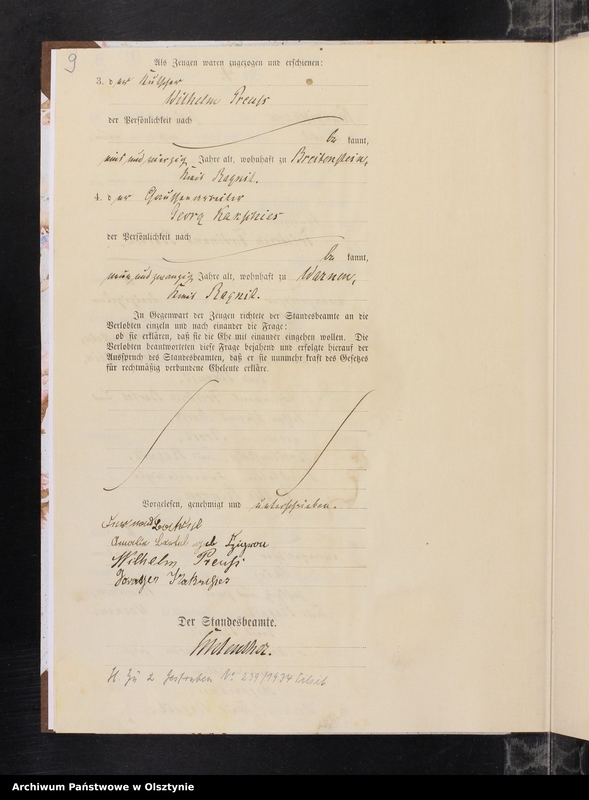 9
Als Zeugen waren zugezogen und erschienen:
3. der Kutscher
Wilhelm Preuß
der Persönlichkeit nach
be kannt,
ein und vierzig Jahre alt, wohnhaft zu Breitenstein,
Kreis Ragnit.
4. der
Georg
der Persönlichkeit nach
be kannt,
neun und zwanzig Jahre alt, wohnhaft zu Warnen,
Kreis Ragnit.
In Gegenwart der Zeugen richtete der Standesbeamte an die
Verlobten einzeln und nach einander die Frage:
ob sie erklären, daß sie die Ehe mit einander eingehen wollen. Die
Verlobten beantworteten diese Frage bejahend und erfolgte hierauf der
Ausspruch des Standesbeamten, daß er sie nunmehr kraft des Gesetzes
für rechtmäßig verbundene Eheleute erkläre.
Vorgelesen, genehmigt und unterschrieben.
Amalie geb
Wilhelm Preuß
Der Standesbeamte.
H. Zu 2 gestorben Nr 239/1934 Tilsit
Archiwum Państwowe w Olsztynie